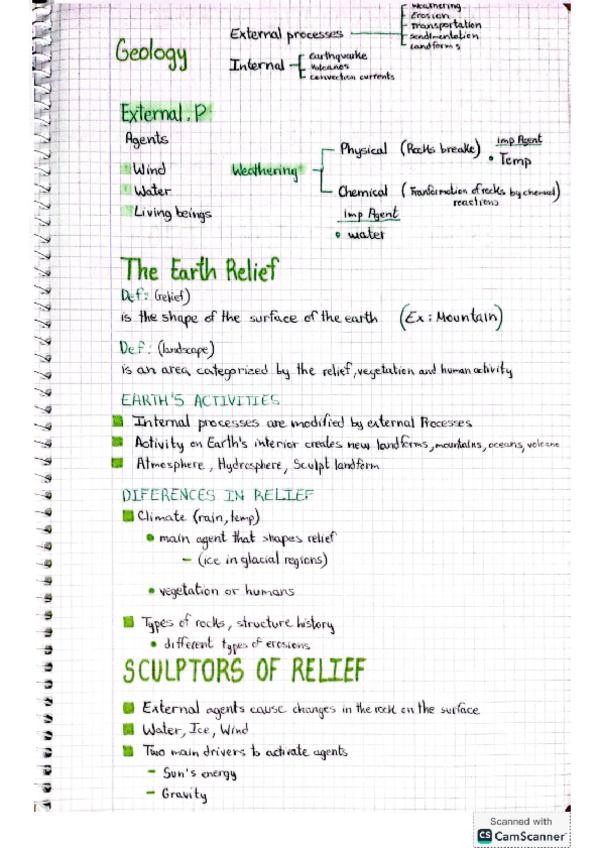 Weathering
Erosion
Transportation
Sendimentation
Landforms
External processes
Geology
Internal
Earthquake
Volcanos
convection currents
External. P
Agents
Wind
Water
Living beings
Weathering
Physical (Rocks breake)
imp Agent
• Temp
Chemical (Tranformation of rocks by chemical reactions)
imp Agent
• water
The Earth Relief
Def: (relief)
is the shape of the surface of the earth (Ex: Mountain)
Def: (landscape)
is an area categorized by the relief, vegetation and human activity
EARTH'S ACTIVITIES
Internal processes are modified by external Processes
Activity on Earth's interior creates new landforms, mountains, oceans, volcano
Atmosphere, Hydrosphere, Sculpt landform
DIFERENCES IN RELIEF
Climate (rain, temp)
• main agent that shapes relief
– (ice in glacial regions)
• vegetation or humans
Types of rocks, structure history
• different types of erosions
SCULPTORS OF RELIEF
External agents cause changes in the rock on the surface
Water, Ice, Wind
Two main drivers to activate agents
– Sun's energy
– Gravity
Scanned with
CS CamScanner